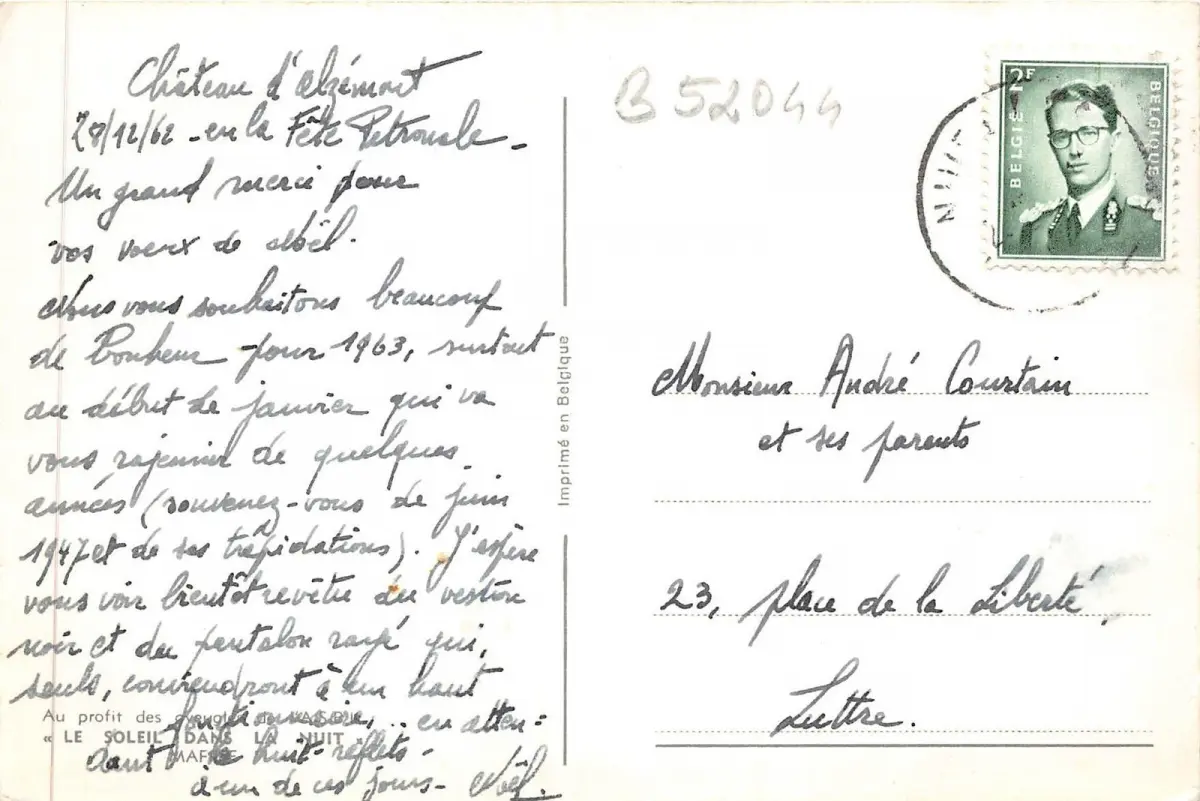 Château d'Alzémont
28/12/62 - en la Fête Patronale -
Un grand merci pour
vos voeux de Noël.
Nous vous souhaitons beaucoup
de Bonheur pour 1963, surtout
au début de janvier qui va
vous rajeunir de quelques
années (souvenez-vous de juin
1947 et de ses trépidations). J'espère
vous voir bientôt revêtu du veston
noir et du pantalon rayé qui,
seuls, conviendront à un haut
fonctionnaire, .. en atten=
dant le huit-reflets -
à un de ces jours - Noël.
Au profit des aveugles de
« LE SOLEIL DANS LA NUIT »
MAFFLE
Imprimé en Belgique
B 52044
2F
BELGIË
BELGIQUE
Monsieur André Courtain
et ses parents
23, place de la Liberté,
Luttre.